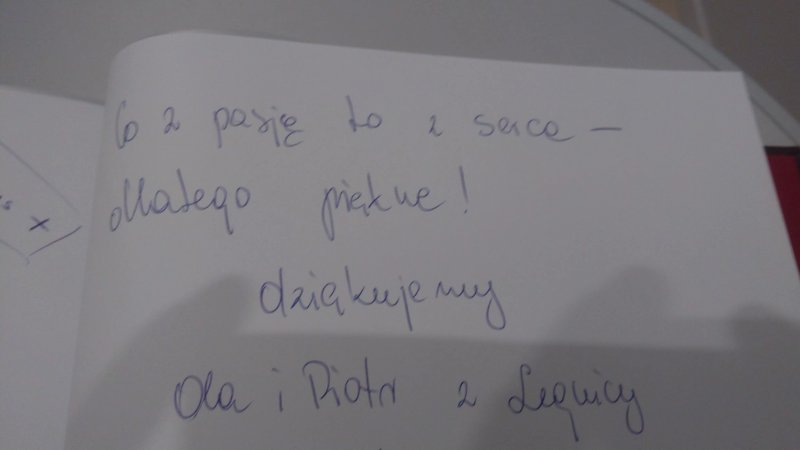 Co z pasję to z serca –
dlatego piękne!
dziękujemy
Ola i Piotr z Legnicy
x